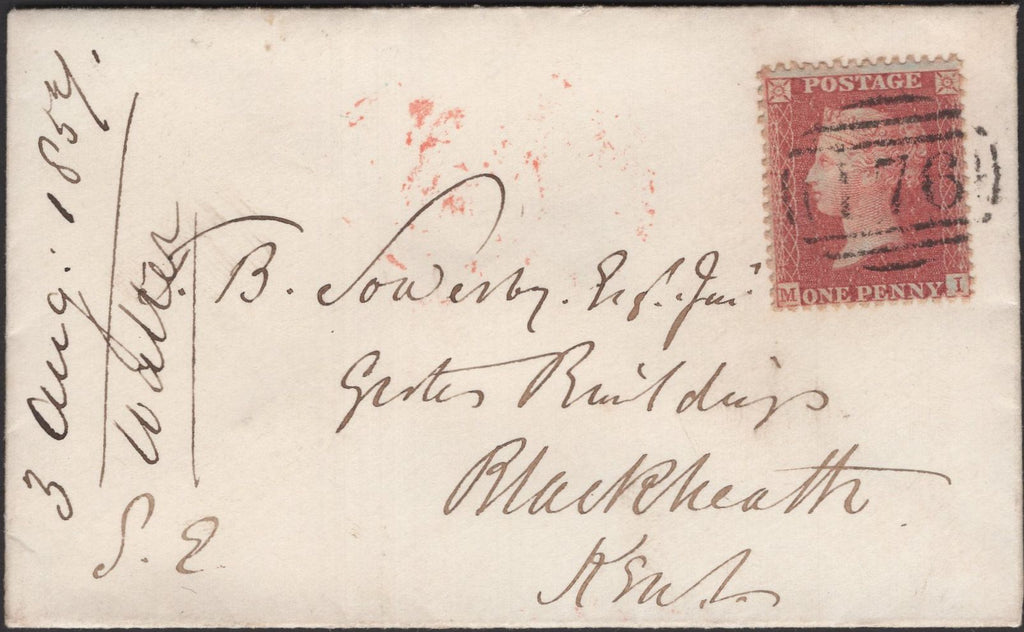 POSTAGE
ONE PENNY
M I
176
3 Aug. 1857.
Walter
B. Sowerby. Esq. Jun
Grotes Buildings
Blackheath
Kent.
S. E